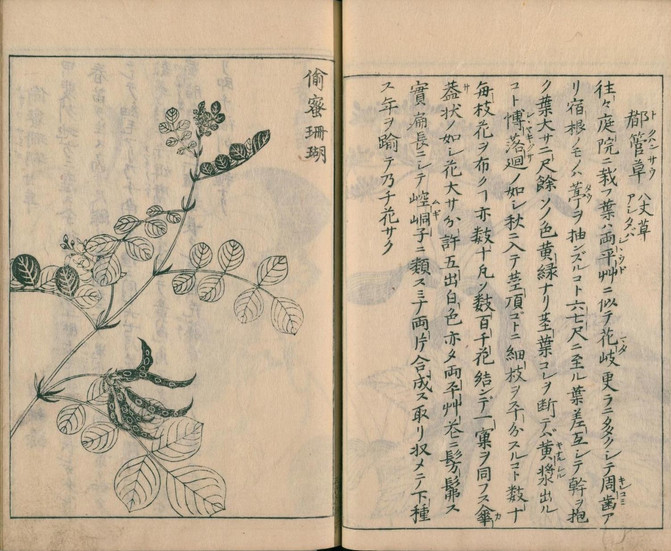 都管草 八丈草 アシタバ
往々庭院ニ栽フ葉ハ両平艸ニ似テ花岐更ラニタクシテ周歯ア
リ宿根ノモノハ葶ヲ抽ンズルコト六七尺ニ至ル葉差互シテ幹ヲ抱
ク葉大サ二尺餘ソノ色黄緑ナリ茎葉コレヲ断テバ黄漿出ル
コト博落廻ノ如シ秋ニ入テ茎頂コトニ細枝ヲ分スルコト数十
毎枝花ヲ布ク亦数十凡ソ数百千花結ンデ一窠ヲ同フス傘
蓋状ノ如シ花大サ分許五出白色亦タ両平艸花ニ髣髴ス
實扁長ニシテ崆峒子ニ類スミナ両片合成ス取リ収メテ下種
ス年ヲ踰テ乃チ花サク
偷蜜珊瑚